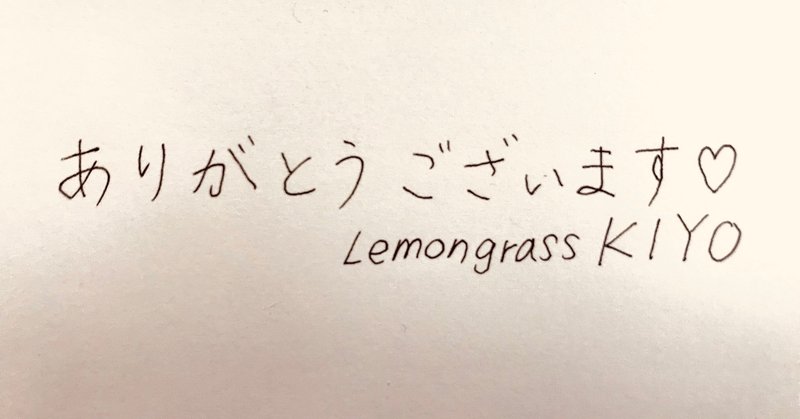 ありがとうございます♡
Lemongrass KIYO